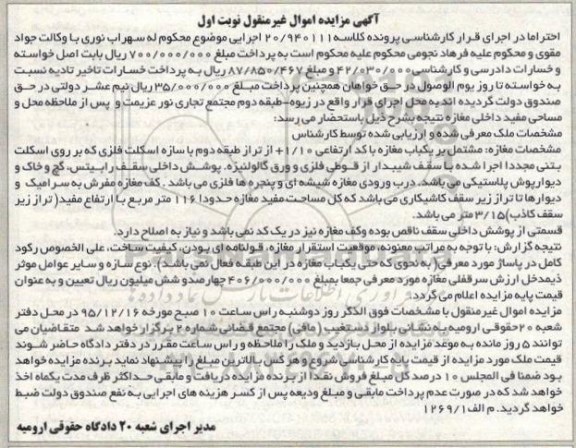 آگهی مزایده اموال غیرمنقول نوبت اول
احتراما در اجرای قرار کارشناسی پرونده کلاسه ۲۰/۹۴۰۱۱۱ اجرایی موضوع محکوم له سهراب نوری با وکالت جواد
مقوی و محکوم علیه فرهاد نجومی محکوم علیه محکوم است به پرداخت مبلغ ۷۰۰/۰۰۰/۰۰۰ ریال بابت اصل خواسته
و خسارات دادرسی و کارشناسی ۴۲/۰۳۰/۰۰۰ و مبلغ ۸۷/۸۵۰/۴۶۷ ریال به پرداخت خسارات تاخیر تادیه نسبت
به خواسته تا روز یوم الوصول در حق خواهان همچنین پرداخت مبلغ ۳۵/۰۰۰/۰۰۰ ریال نیم عشر دولتی در حق
صندوق دولت گردیده اند به محل اجرای قرار واقع در زیوه-طبقه دوم مجتمع تجاری نور عزیمت و پس از ملاحظه محل و
مساحی مفید داخلی مغازه نتیجه بشرح ذیل باستحضار می رسد:
مشخصات ملک معرفی شده و ارزیابی شده توسط کارشناس
مشخصات مغازه: مشتمل بر یکباب مغازه با کد ارتفاعی ۱/۱۰+ از تراز طبقه دوم با سازه اسکلت فلزی که بر روی اسکلت
بتنی مجددا اجرا شده با سقف شیبدار از قوطی فلزی و ورق گالوانیزه. پوشش داخلی سقف رابیتس، گچ و خاک و
دیوارپوش پلاستیکی می باشد. درب ورودی مغازه شیشه ای و پنجره ها فلزی می باشد. کف مغازه مفرش به سرامیک و
دیوارها تا تراز زیر سقف کاشیکاری می باشد که کل مساحت مفید مغازه حدودا ۱۱۶ متر مربع با ارتفاع مفید (تراز زیر
سقف کاذب) ۳/۱۵ متر می باشد.
قسمتی از پوشش داخلی سقف ناقص بوده وکف مغازه نیز در یک کد نمی باشد و نیاز به اصلاح دارد.
نتیجه گزارش: با توجه به مراتب معنونه، موقعیت استقرار مغازه، قولنامه ای بودن، کیفیت ساخت، علی الخصوص رکود
کامل در پاساژ مورد معرفی (به نحوی که حتی یکباب مغازه در این طبقه فعال نمی باشد)، نوع سازه و سایر عوامل موثر
ذیمدخل ارزش سرقفلی مغازه مورد معرفی جمعا بمبلغ ۴۰۶/۰۰۰/۰۰۰ چهارصدو شش میلیون ریال تعیین و به عنوان
قیمت پایه مزایده اعلام می گردد:
مزایده اموال غیرمنقول با مشخصات فوق الذکر روز دوشنبه راس ساعت ۱۰ صبح مورخه ۹۵/۱۲/۱۶ در محل دفتر
شعبه ۲۰حقوقی ارومیه به نشانی بلوار دستغیب (مافی) مجتمع قضائی شماره ۲ برگزار خواهد شد متقاضیان می
توانند ۵ روز مانده به موعد مزایده از محل بازدید و ملک را ملاحظه و راس ساعت مقرر در دفتر دادگاه حاضر شوند
قیمت ملک مورد مزایده از قیمت پایه کارشناسی شروع و هرکس بالاترین مبلغ را پیشنهاد نماید برنده مزایده خواهد
بود ضمنا فی المجلس ۱۰ درصد کل مبلغ فروش نقدا از برنده مزایده دریافت و مابقی حداکثر ظرف مدت یکماه اخذ
خواهد شد که در صورت عدم پرداخت مابقی و مبلغ ودیعه پس از کسر هزینه های اجرایی به نفع صندوق دولت ضبط
خواهد گردید. م الف ۱۲۶۹/۱
مدیر اجرای شعبه ۲۰ دادگاه حقوقی ارومیه